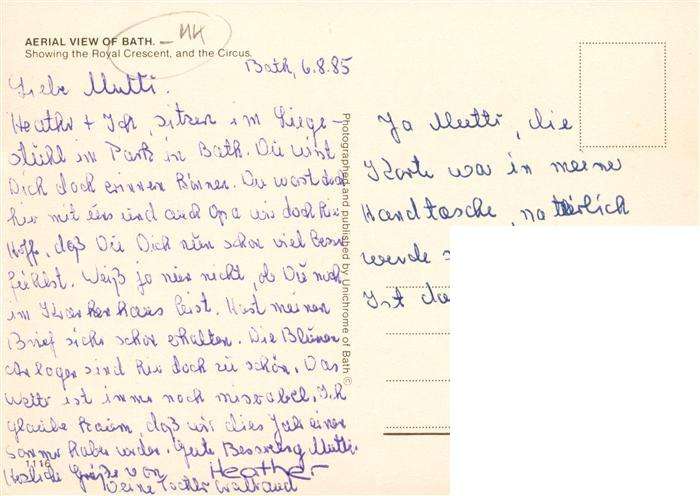 AERIAL VIEW OF BATH. - NK
Showing the Royal Crescent, and the Circus.
Bath, 6.8.85
Liebe Mutti.
Heather + Ich, sitzen im Liege-
stühl im Park in Bath. Du wirst
Dich doch erinnern können. Du warst doch
hier mit uns und auch Opa war doch hier
Hoffe, daß Du Dich nun schon viel besser
fühlst. Weiß ja nur nicht, ob Du noch
im Krankenhaus bist. Hast meinen
Brief sicher schon erhalten. Die Blumen
Anlagen sind hier doch zu schön. Das
Wetter ist immer noch miserabel. Ich
glaube kaum, daß wir dies Jahr einen
Sommer haben werden. Gute Besserung Mutti.
Herzliche Grüße von Heather
Deine Tochter Waltraud
1116
Photographed and published by Unichrome of Bath ©
Ja Mutti, die
Karte war in meine
Handtasche, natürlich
werde
Ist